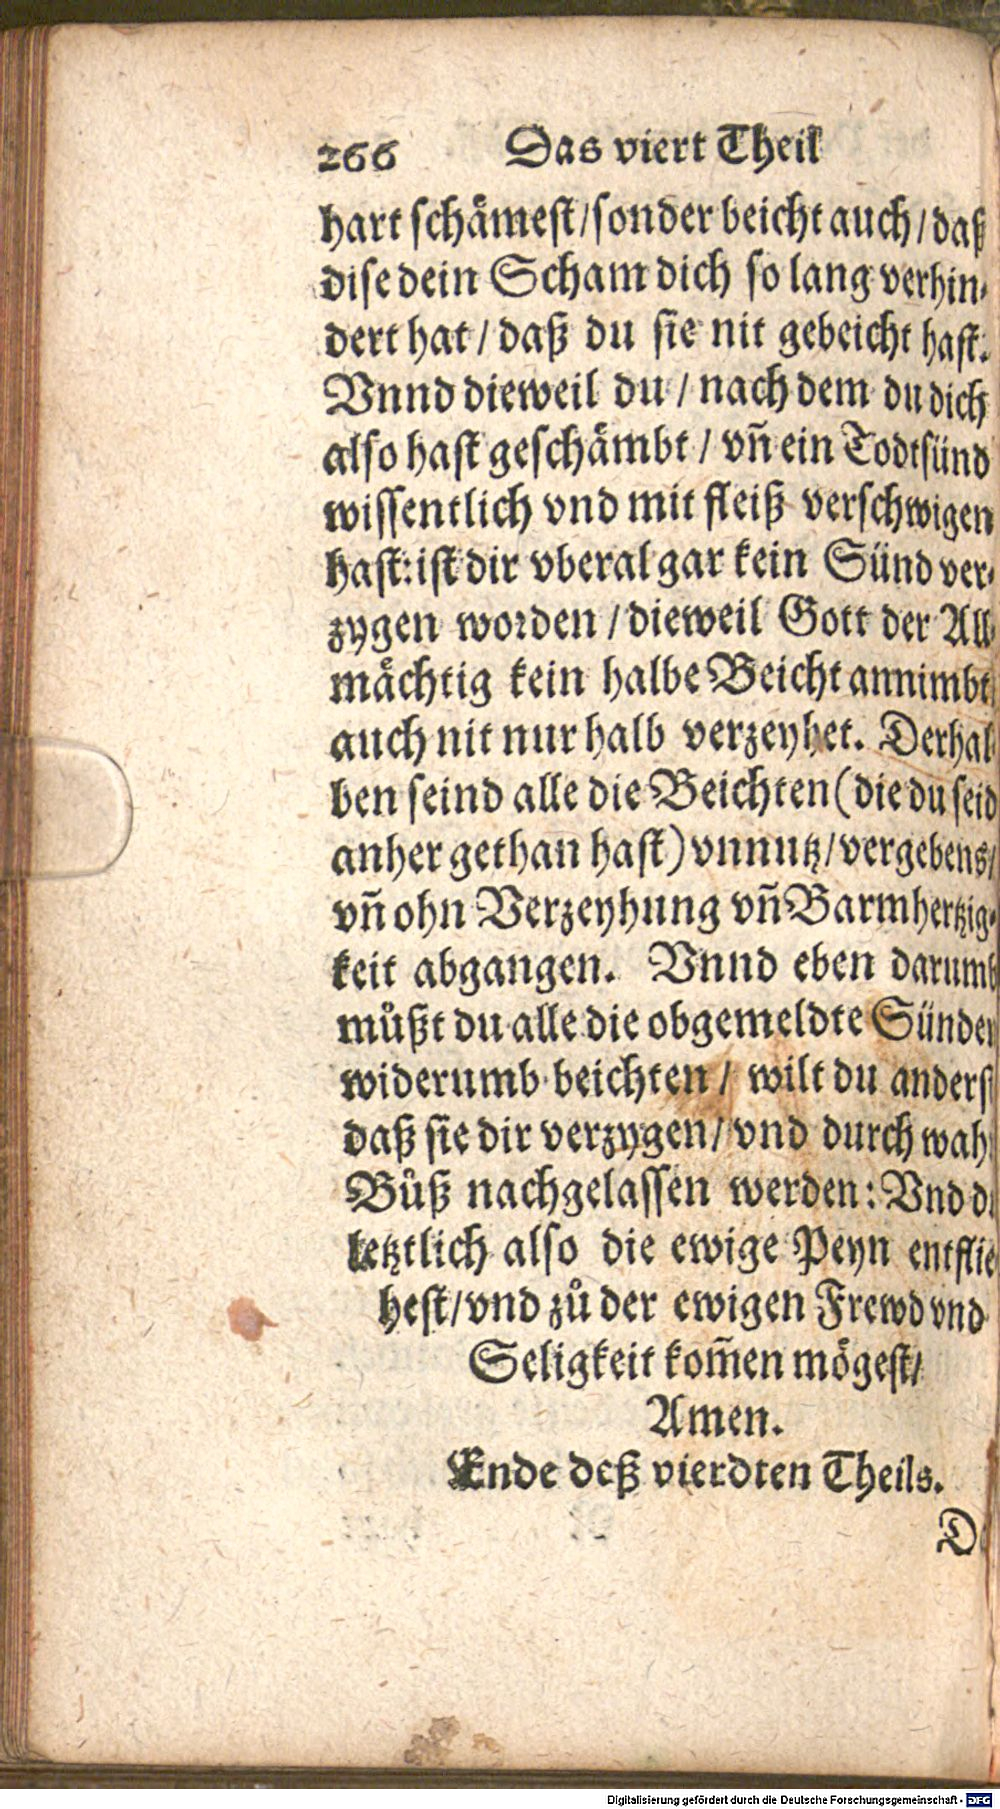 266 Das viert Theil
hart schämest/sonder beicht auch/daß
dise dein Scham dich so lang verhin-
dert hat/daß du sie nit gebeicht hast.
Vnnd dieweil du/nach dem du dich
also hast geschämbt/vñ ein Todtsünd
wissentlich vnd mit fleiß verschwigen
hast: ist dir vberal gar kein Sünd ver-
zygen worden/dieweil Gott der All-
mächtig kein halbe Beicht annimbt
auch nit nur halb verzeyhet. Derhal
ben seind alle die Beichten (die du seid
anher gethan hast) vnnutz/vergebens/
vñ ohn Verzeyhung vñ Barmhertzig-
keit abgangen. Vnnd eben darumb
můßt du alle die obgemeldte Sünden
widerumb beichten/wilt du anderst
daß sie dir verzygen/vnd durch wah
Bůß nachgelassen werden: Vnd d
letztlich also die ewige Peyn entflie
hest/vnd zů der ewigen Frewd vnd
Seligkeit kom̃en mögest/
Amen.
Ende deß vierdten Theils.
D
Digitalisierung gefördert durch die Deutsche Forschungsgemeinschaft - DFG